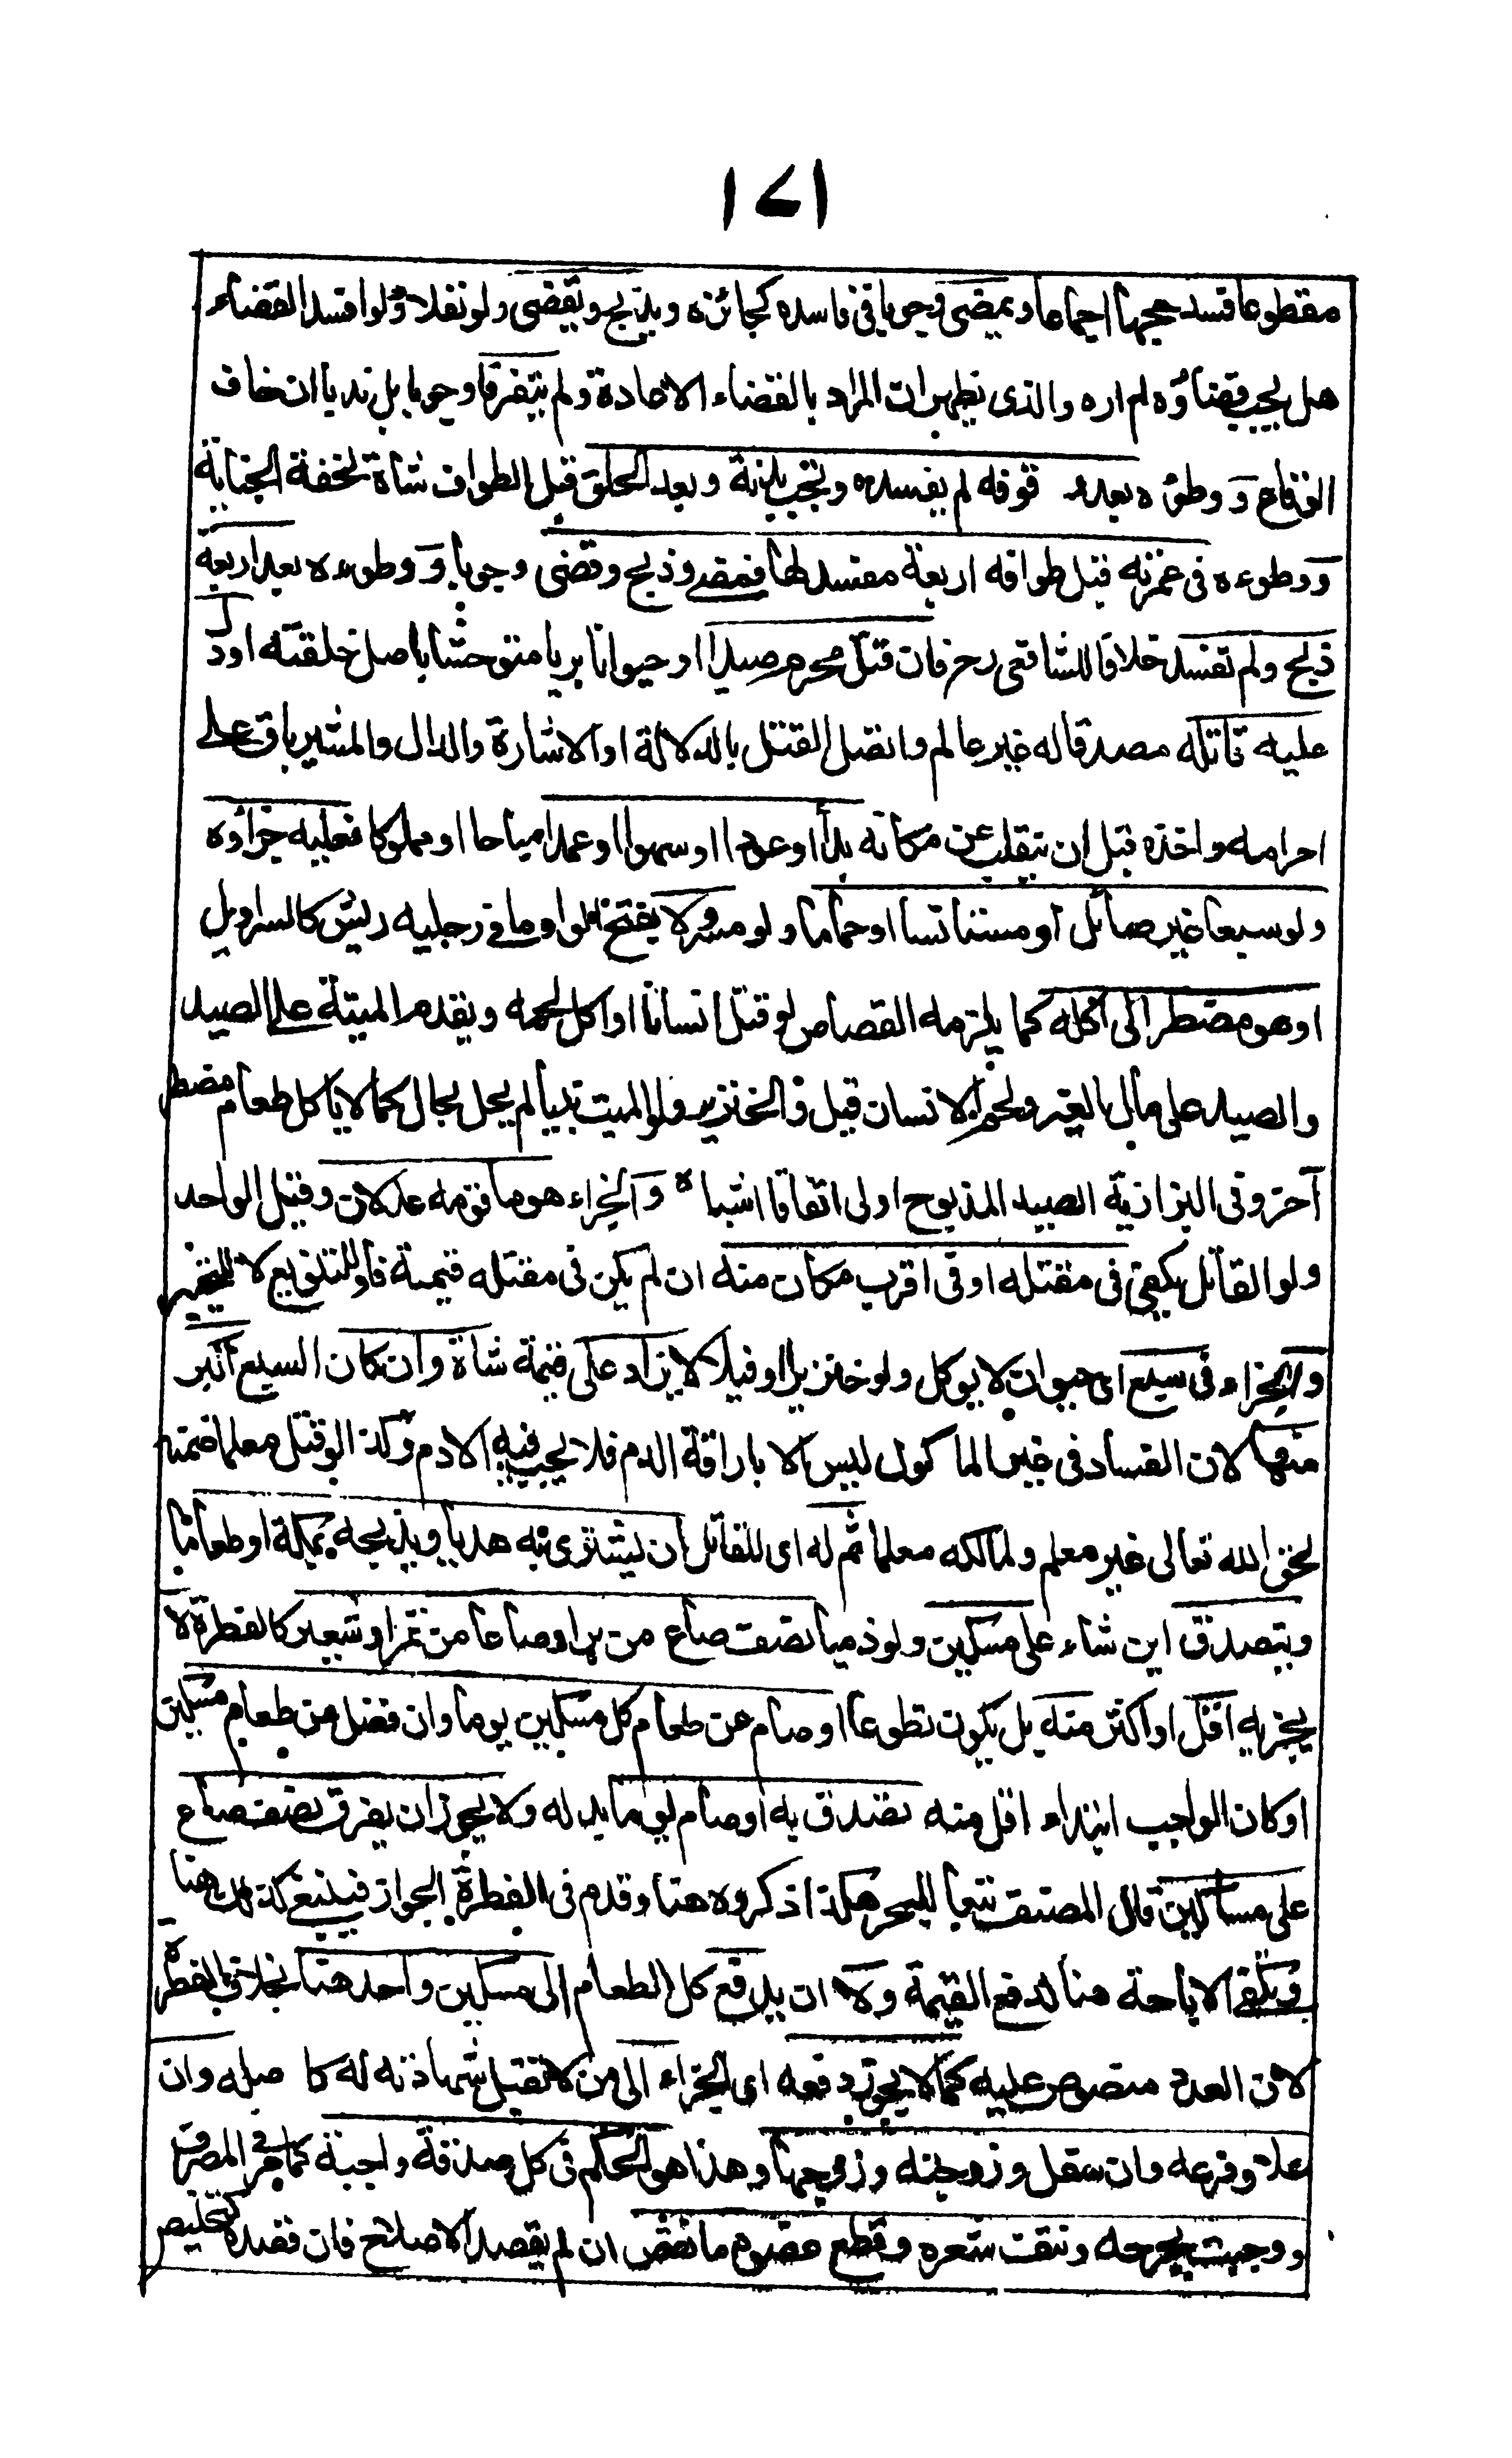 ١٤١
مقطوعا فسد حجهما اجماعا و يمضى وجوبا فى فاسده كجائزه و يذبح و يقضى ولو نفلا ولو افسد القضاء
هل يجب قضاؤه لم اره والذى يظهر ان المراد بالقضاء الاعادة و لم يتفرقا وجوبا بل ندبا ان خاف
الوقاع و وطؤه بعد وقوفه لم يفسده و تجب بدنة و بعد الحلق قبل الطواف شاة لخفة الجناية
و وطوءه فى عمرته قبل طوافه اربعة مفسد لها فمضى و ذبح و قضى وجوبا و وطوءه بعد اربعة
ذبح و لم تفسد خلافا للشافعى رح فان قتل محرم صيدا او حيوانا بريا متوحشا باصل خلقته او دل
عليه قاتله مصدقا له غير عالم واتصل القتل بالدلالة او الاشارة والدال والمشير باق على
احرامه واخذه قبل ان ينقلب عن مكانه بدأ او عودا او سهوا او عمدا مباحا او مملوكا فعليه جزاؤه
ولو سبعا غير صائل او مستأنسا او حماما ولو مسرولا بفتح الواو ما فى رجليه ريش كالسراويل
او هو مضطر الى اكله كما يلزمه القصاص لو قتل انسانا او اكل لحمه و يقدم الميتة على الصيد
والصيد على مال الغير و لحم الانسان قيل والخنزير ولو الميت نبيا لم يحل بحال كما لا ياكل طعام مضطر
آخر وفى البزازية الصيد المذبوح اولى اتفاقا اشباه و الجزاء هو ما قومه عدلان وقيل الواحد
ولو القاتل يكفى فى مقتله او فى اقرب مكان منه ان لم يكن فى مقتله قيمة فاو للتنويع لا للتخيير
و الجزاء فى سبع اى حيوان لا يوكل ولو خنزيرا او فيلا لا يزاد على قيمة شاة وان كان السبع اكبر
منها لان الفساد فى غير الماكول ليس الا باراقة الدم فلا يجب فيه الا دم وكذا لو قتل معلما ضمنه
لحق الله تعالى غير معلم و لمالكه معلما ثم له اى للقاتل ان يشترى به هديا ويذبحه بمكة او طعاما
ويتصدق اين شاء على مسكين ولو ذميا نصف صاع من بر او صاعا من تمر او شعير كالفطرة لا
يجزيه اقل او اكثر منه بل يكون تطوعا او صام عن طعام كل مسكين يوما وان فضل من طعام مسكين
او كان الواجب ابتداء اقل منه تصدق به او صام يوما بدله و لا يجوز ان يفرق نصف صاع
على مساكين قال المصنف تبعا للبحر هكذا ذكروه هنا و قدم فى الفطرة الجواز فينبغى كذلك هنا
و تكفى الاباحة هنا كدفع القيمة و لا ان يدفع كل الطعام الى مسكين واحد هنا بخلاف الفطرة
لان العدد منصوص عليه كما لا يجوز دفعه اى الجزاء الى من لا تقبل شهادته له كاصله وان
علا وفرعه وان سفل و زوجته و زوجها و هذا هو الحكم فى كل صدقة واجبة كما مر فى المصرف
و وجبت بجرحه و نتف شعره و قطع عضوه ما نقص ان لم يقصد الاصلاح فان قصده كتخليص